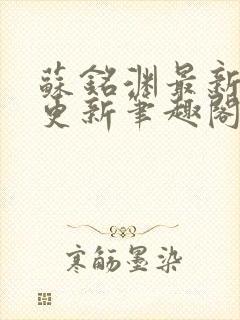 蘇銘淵最新
更新筆趣閣
寒舫墨染